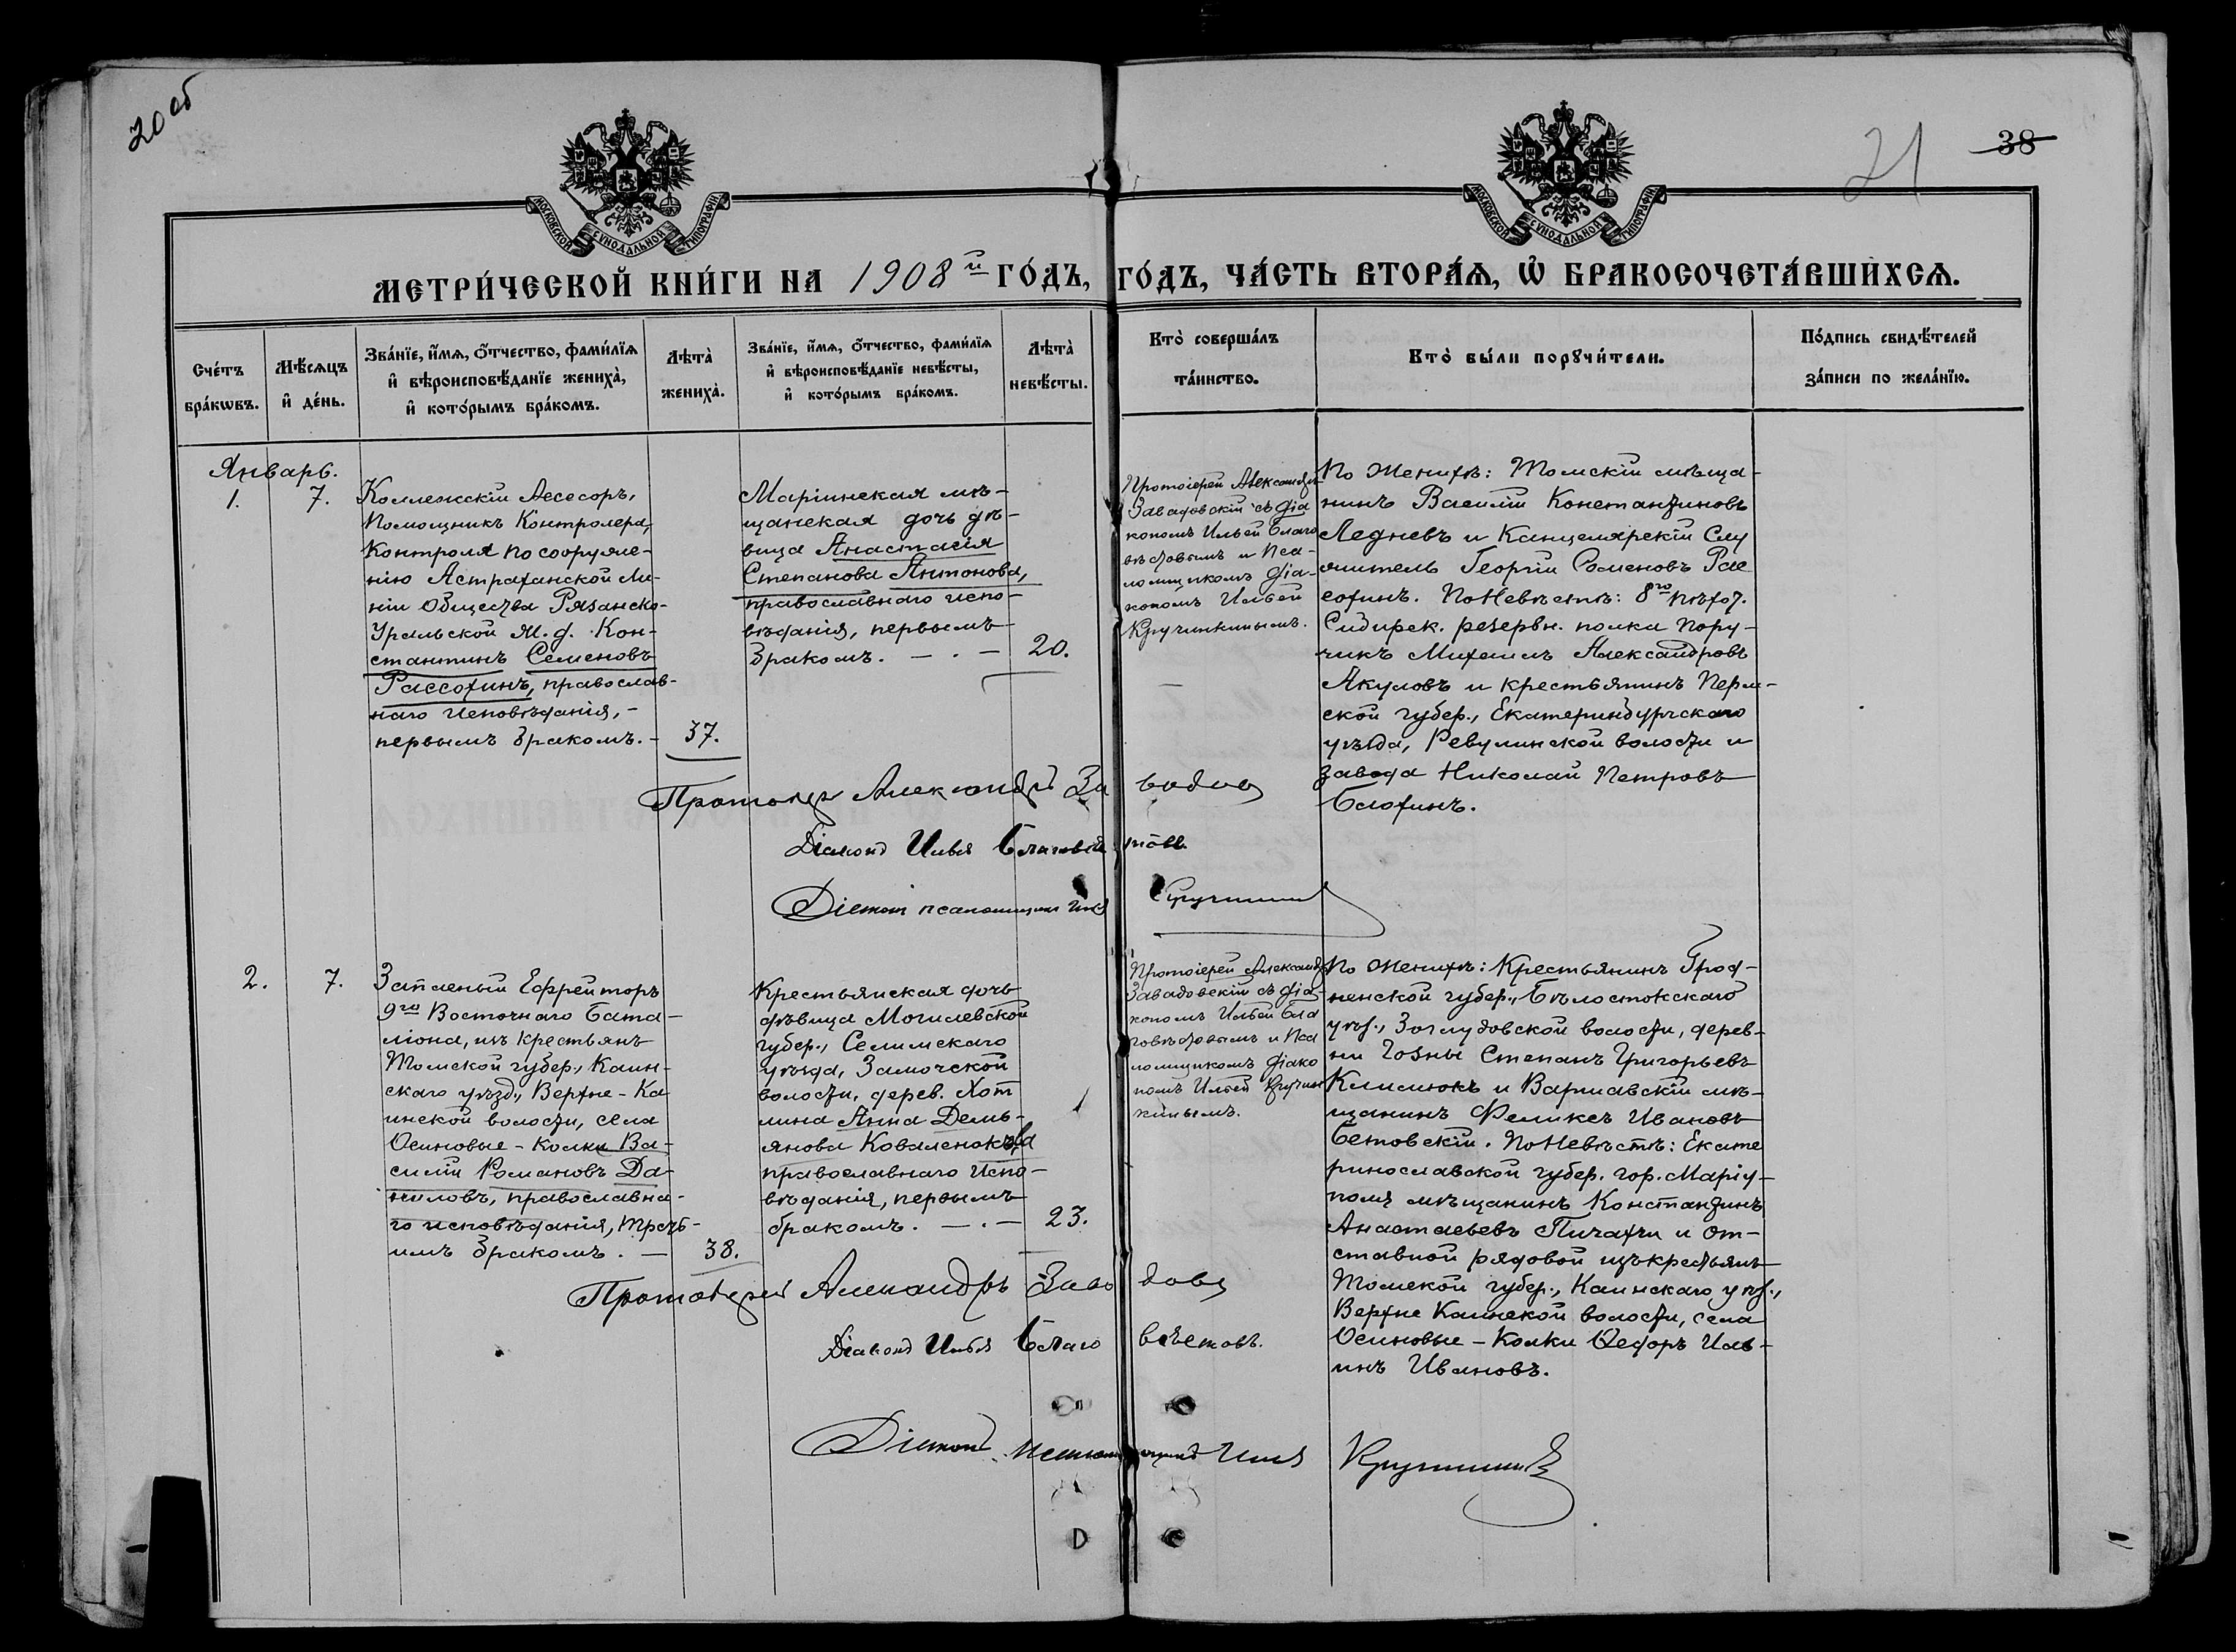 20 об
21
38
МОСКОВСКОЙ СѴНОДАЛЬНОЙ ТИПОГРАФІИ
МОСКОВСКОЙ СѴНОДАЛЬНОЙ ТИПОГРАФІИ
МЕТРИ́ЧЕСКОЙ КНИ́ГИ НА 1908 й ГО́ДЪ,
ГО́ДЪ, ЧА́СТЬ ВТОРА́Ѧ, Ѡ҆ БРАКОСОЧЕТА́ВШИХСѦ.
Сче́тъ
бра́кѡвъ.
Мѣ́сѧцъ
и҆ де́нь.
Зва́нїе, и҆́мѧ, ѻ҆́тчество, фами́лїѧ
и҆ вѣроисповѣ́данїе жениха̀,
и҆ кото́рымъ бра́комъ.
Лѣта̀
жениха̀.
Зва́нїе, и҆́мѧ, ѻ҆́тчество, фами́лїѧ
и҆ вѣроисповѣ́данїе невѣ́сты,
и҆ кото́рымъ бра́комъ.
Лѣта̀
невѣ́сты.
Кто̀ соверша́лъ
та́инство.
Кто̀ бы́ли порꙋчи́тели.
По́дпись свидѣ́телей
за́писи по жела́нїю.
Январь.
1.
7.
Коллежскій Ассесоръ,
Помощникъ Контролера,
Контроля по сооруже-
нію Астраханской Ли-
ніи Общества Рязанско-
Уральской ж.д. Кон-
стантинъ Семеновъ
Рассохинъ, православ-
наго исповѣданія, -
первымъ бракомъ. -
37.
Маріинская мѣ-
щанская дочь дѣ-
вица Анастасія
Степанова Антонова,
православнаго испо-
вѣданія, первымъ
бракомъ. - . -
20.
Протоіерей Александръ
Завадовскій съ діа
кономъ Ильей Благо
вѣстовымъ и Пса-
ломщикомъ діа-
кономъ Ильей
Кручинкинымъ.
По Женихѣ: Томскій мѣща-
нинъ Василій Константиновъ
Ледневъ и Канцелярскій Слу
житель Георгій Семеновъ Рас
сохинъ. По Невѣстѣ: 8го пѣхот.
Сибирск. резервн. полка пору-
чикъ Михаилъ Александровъ
Акуловъ и крестьянинъ Перм-
ской губер., Екатеринбургскаго
уѣзда, Ревдинской волости и
завода Николай Петровъ
Блохинъ.
Протоіерей Александръ Завадов
Діаконъ Илья Благовѣстовъ
Діаконъ псаломщикъ Илья Кручинкин
2.
7.
Запасный Ефрейторъ
9го Восточнаго Бата-
ліона, изъ крестьянъ
Томской губер., Каин-
скаго уѣзд., Верхне-Ка
инской волости, села
Осиновые-Колки Ва-
силій Романовъ Да-
ниловъ, православна-
го исповѣданія, треть-
имъ бракомъ. -
38.
Крестьянская дочь
дѣвица Могилевской
губер., Сенинскаго
уѣзда, Замочской
волости, дерев. Хот
лина Анна Демь-
янова Коваленокова
православнаго испо-
вѣданія, первымъ
бракомъ. - . -
23.
Протоіерей Александръ
Завадовскій съ діа-
кономъ Ильей Бла
говѣстовымъ и Пса
ломщикомъ діако
номъ Ильей Кручин
кинымъ.
По Женихѣ: Крестьянинъ Грод-
ненской губер., Бѣлостокскаго
уѣз., Заблудовской волости, дерев-
ни Степанъ Григорьевъ
Климюкъ и Варшавскій мѣ-
щанинъ Феликсъ Ивановъ
Бетовскій. По Невѣстѣ: Екате
ринославской губер. гор. Маріу-
поля мѣщанинъ Константинъ
Анастасьевъ Пичахчи и от-
ставной рядовой изъ крестьянъ
Томской губер., Каинскаго уѣз.,
Верхне Каинской волости, села
Осиновые-Колки Ѳедоръ Иль-
инъ Ивановъ.
Протоіерей Александръ Завадов
Діаконъ Илья Благовѣстовъ.
Діаконъ псаломщикъ Илья Кручинкин